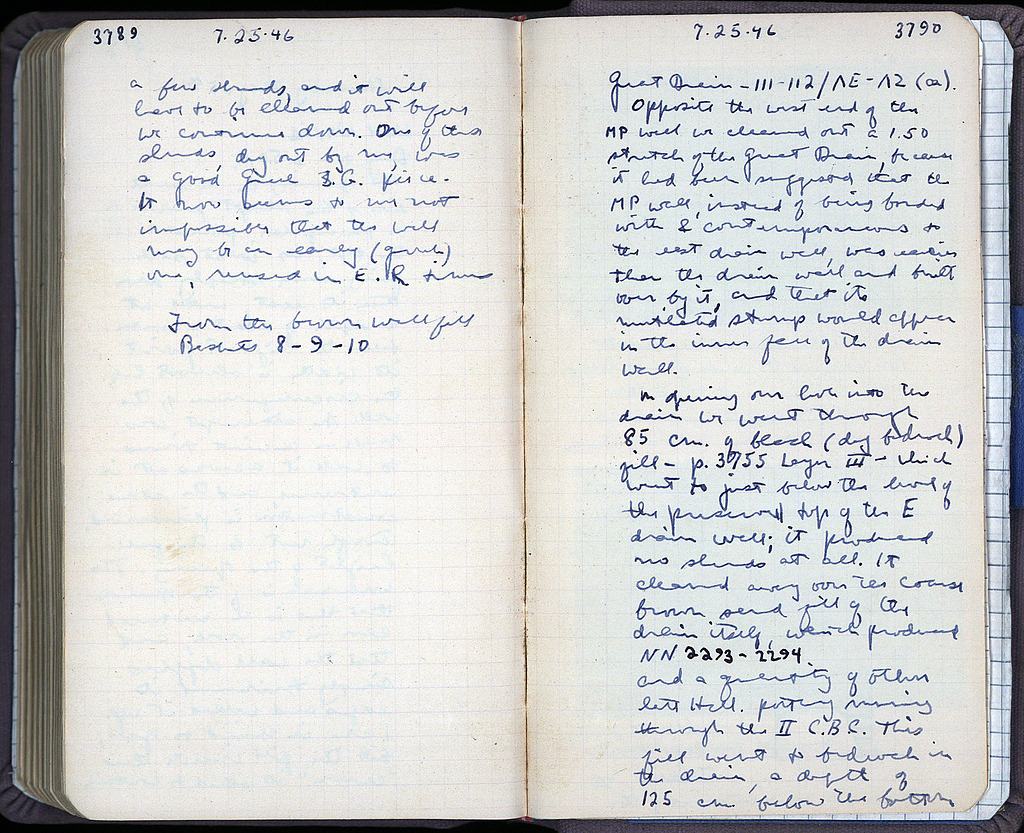 3789
7.25.46
a few sherds, and it will
have to be cleaned out before
we continue down. One of these
sherds, dug out by me, was
a good Greek B.G. piece.
It now seems to me not
impossible that the well
may be an early (Greek)
one, reused in E. R. times
From the brown well fill
Baskets 8-9-10
7.25.46
3790
Great Drain - 111-112/ΛΕ-ΛΖ
Opposite the west end of the
MP wall we cleaned out a 1.50
stretch of the Great Drain, because
it had been suggested that the
MP wall, instead of being bonded
with & contemporaneous to
the east drain wall, was earlier
than the drain wall and built
over by it, and that its
mutilated stump would appear
in the inner face of the drain
wall.
In opening our hole into the
drain we went through
85 cm. of black (dug bedrock)
fill - p. 3755 Layer III - which
went to just below the level of
the preserved top of the E
drain wall; it produced
no sherds at all. It
cleaned away over the coarse
brown sand fill of the
drain itself, which produced
NN 2293-2294
and a quantity of other
late Hell. pottery running
through the II C.B.C. This
fill went to bedrock in
the drain, a depth of
125 cm below the bottom